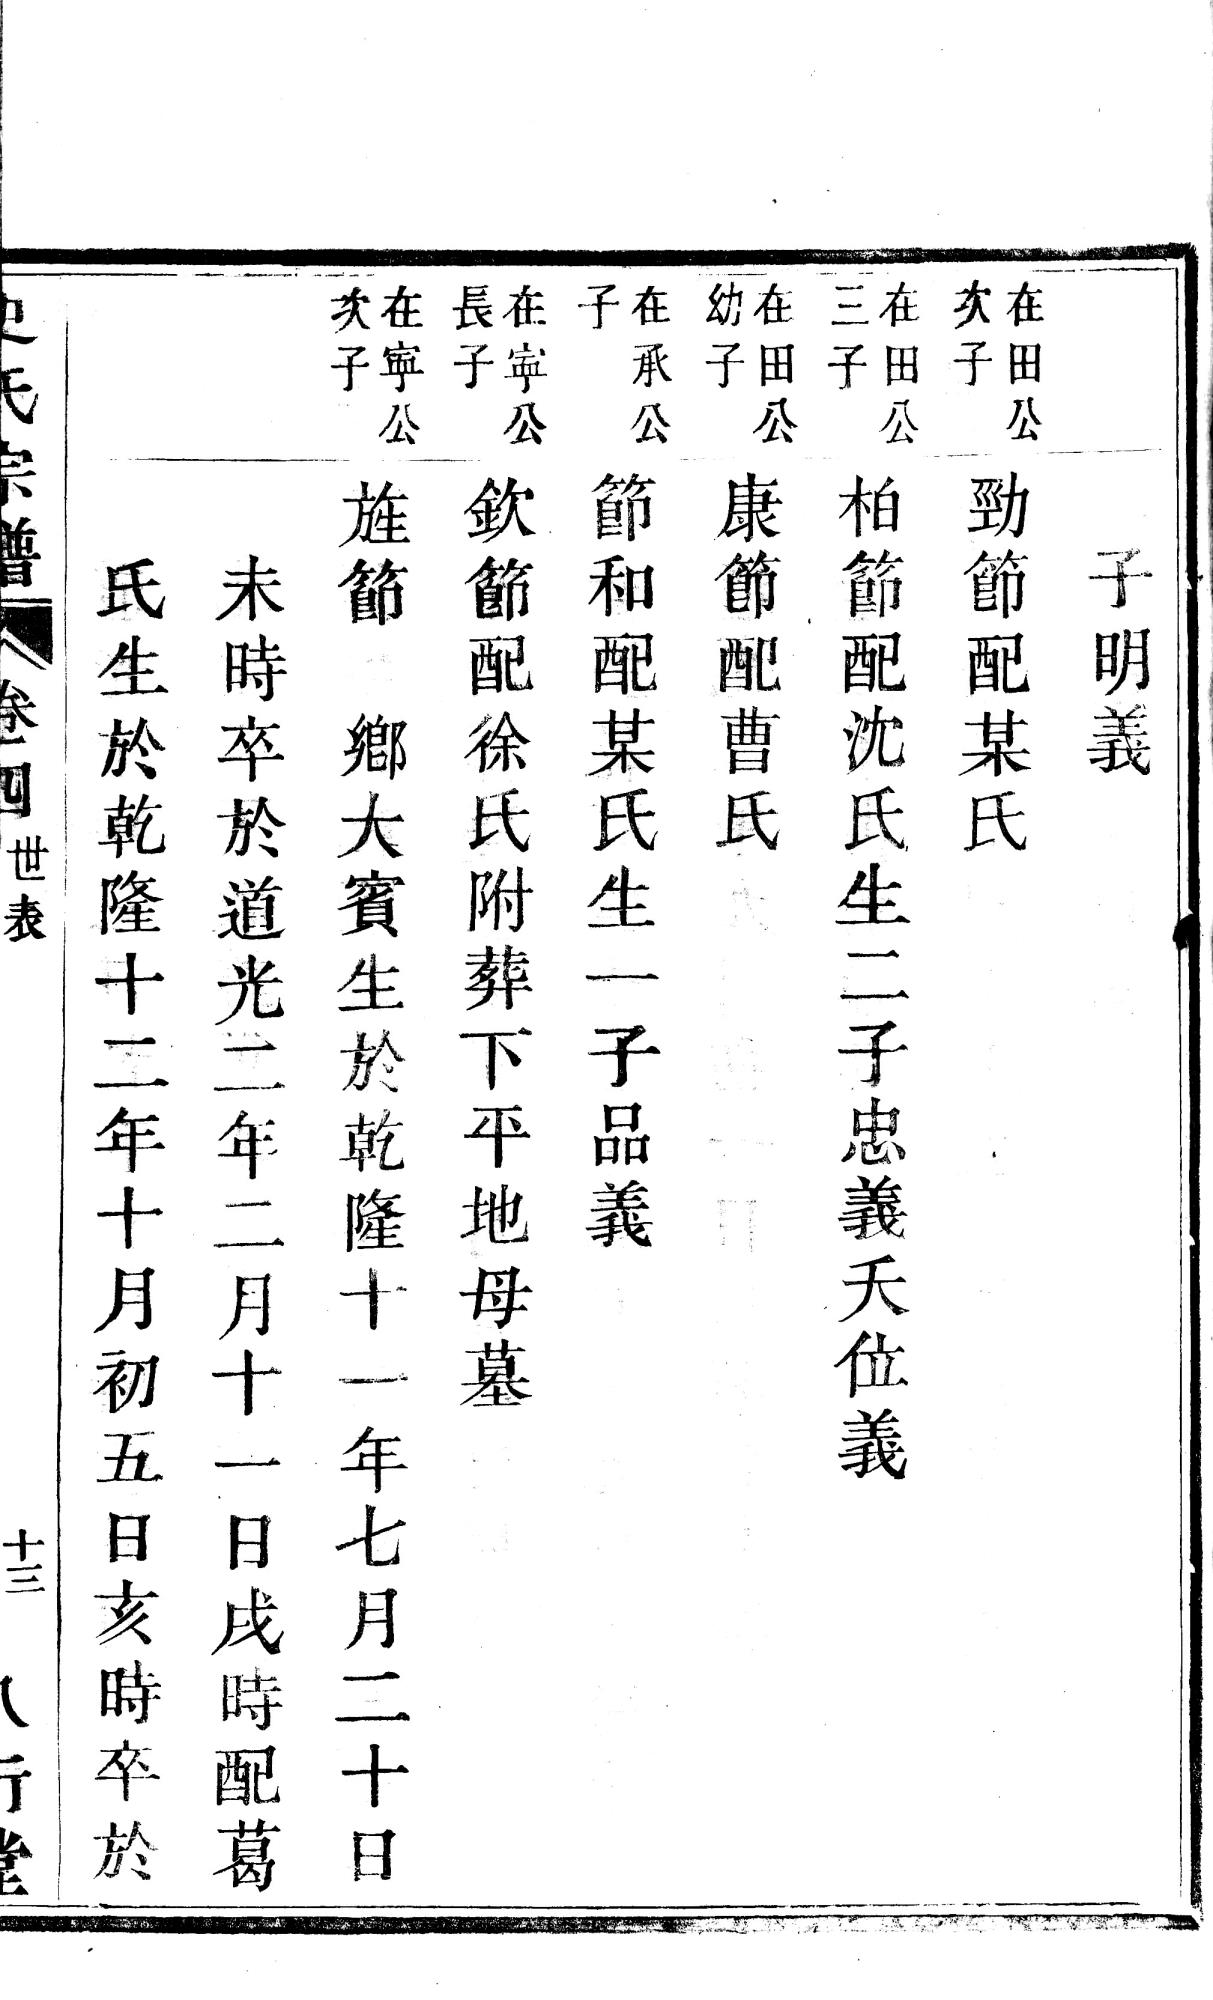 子明義
在田公
次子
勁節配某氏
在田公
三子
柏節配沈氏生二子忠義夭位義
在田公
幼子
康節配曹氏
在承公
子
節和配某氏生一子品義
在寧公
長子
欽節配徐氏附葬下平地母墓
在寧公
次子
旌節 鄉大賓生於乾隆十一年七月二十日
未時卒於道光二年二月十一日戌時配葛
氏生於乾隆十二年十月初五日亥時卒於
史氏宗譜 卷四 世表 十三 八行堂